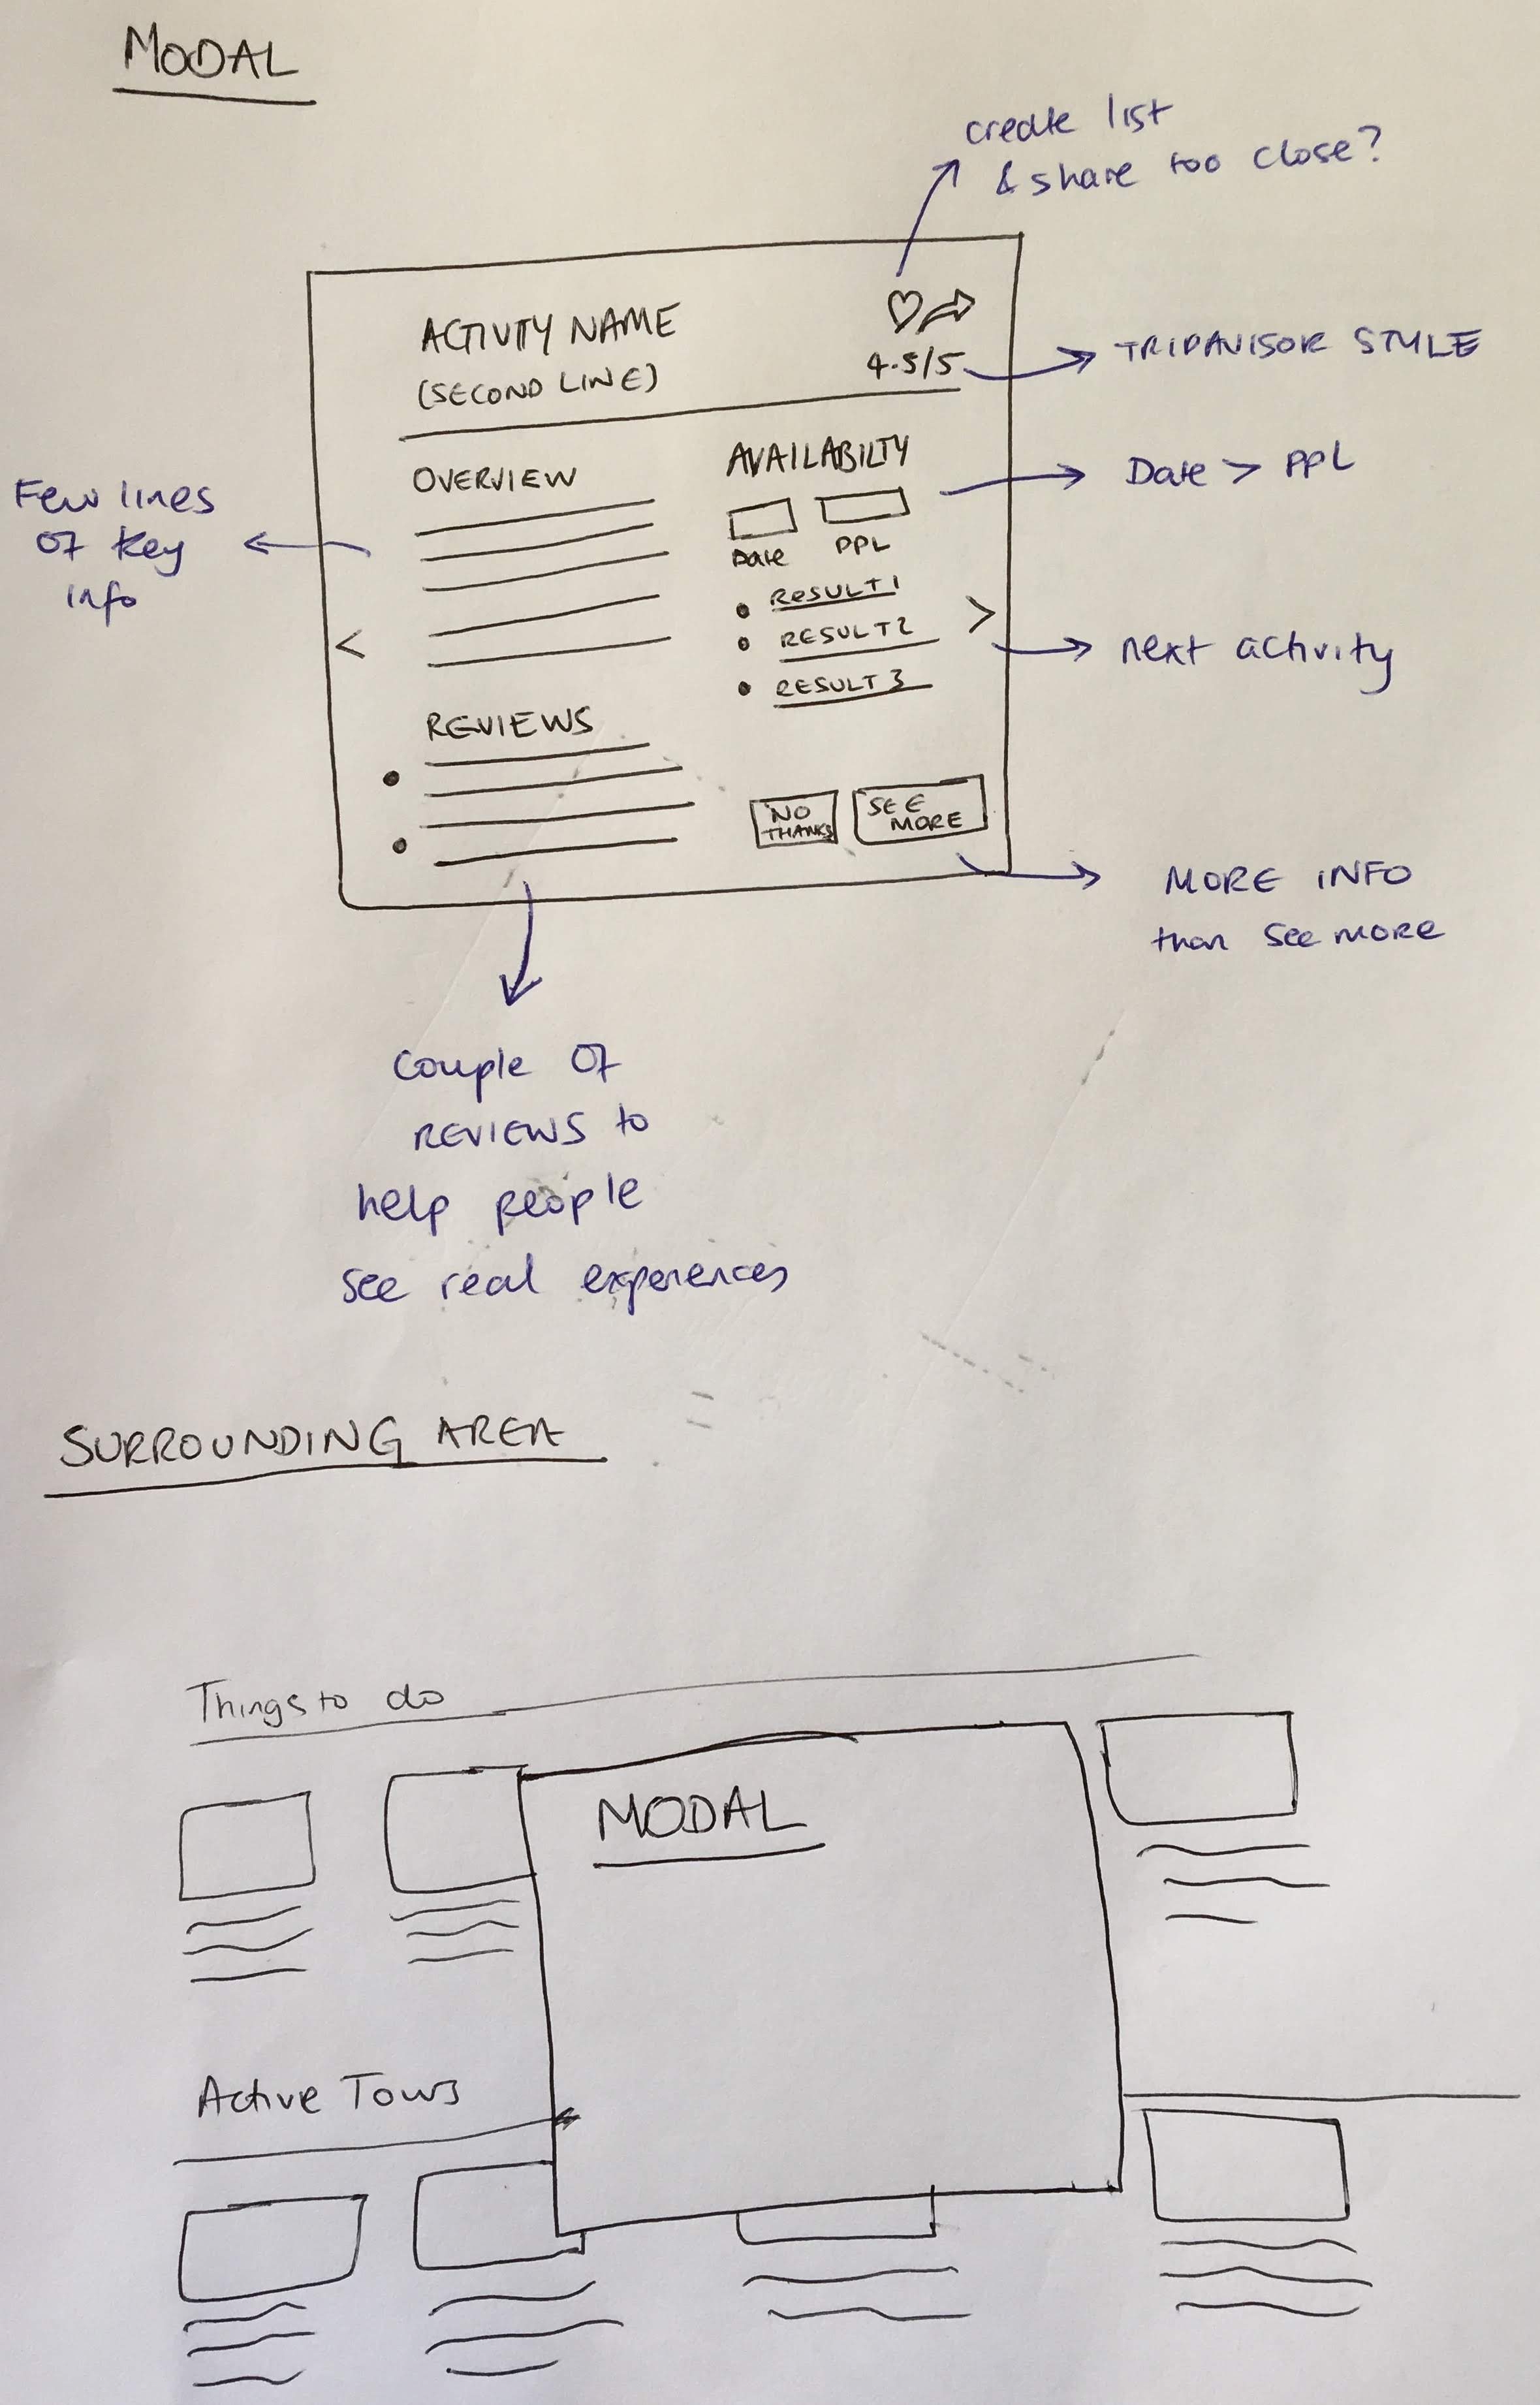 MODAL
create list
& share too close?
ACTIVITY NAME
(SECOND LINE)
4.5/5
TRIPAVISOR STYLE
OVERVIEW
AVAILABILTY
Date > PPL
Few lines
of key
info
Date
PPL
RESULT 1
RESULT 2
RESULT 3
<
>
next activity
REVIEWS
NO
THANKS
SEE
MORE
MORE INFO
than See more
Couple of
REVIEWS to
help people
see real experiences
SURROUNDING AREA
Things to do
MODAL
Active Tours